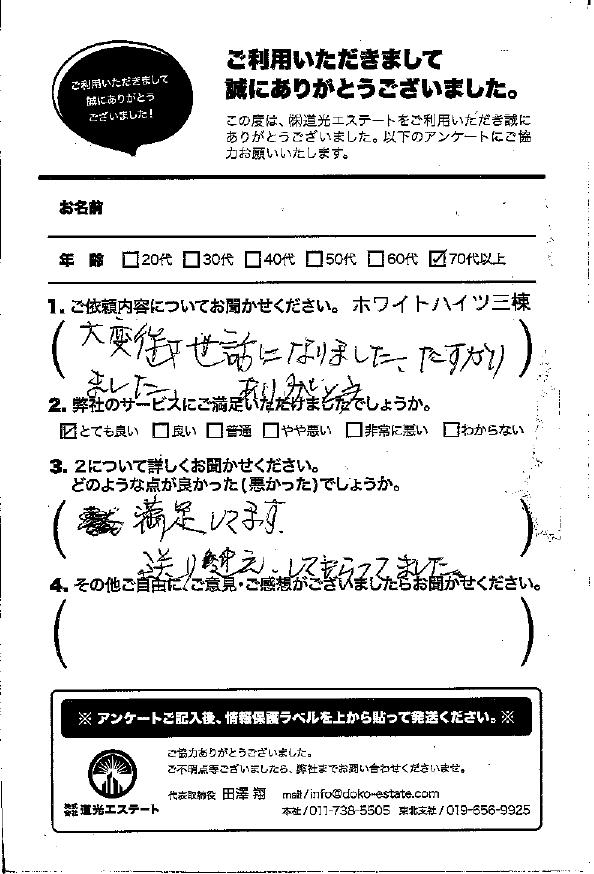 ご利用いただきまして
誠にありがとう
ございました!
ご利用いただきまして
誠にありがとうございました。
この度は、㈱道光エステートをご利用いただき誠に
ありがとうございました。以下のアンケートにご協
力お願いいたします。
お名前
年 齢 □20代 □30代 □40代 □50代 □60代 ☑70代以上
1. ご依頼内容についてお聞かせください。 ホワイトハイツ三棟
(大変御世話になりました、たすかり)
ました、 ありがとう
2. 弊社のサービスにご満足いただけましたでしょうか。
☑とても良い □良い □普通 □やや悪い □非常に悪い □わからない
3. 2について詳しくお聞かせください。
どのような点が良かった(悪かった)でしょうか。
(満足してます。)
送り してもらってました
4. その他ご自由にご意見・ご感想がございましたらお聞かせください。
※ アンケートご記入後、情報保護ラベルを上から貼って発送ください。※
ご協力ありがとうございました。
ご不明点等ございましたら、弊社までお問い合わせくださいませ。
代表取締役 田澤 翔 mail/info@doko-estate.com
株式会社 道光エステート 本社/011-738-5505 東北支社/019-656-9925